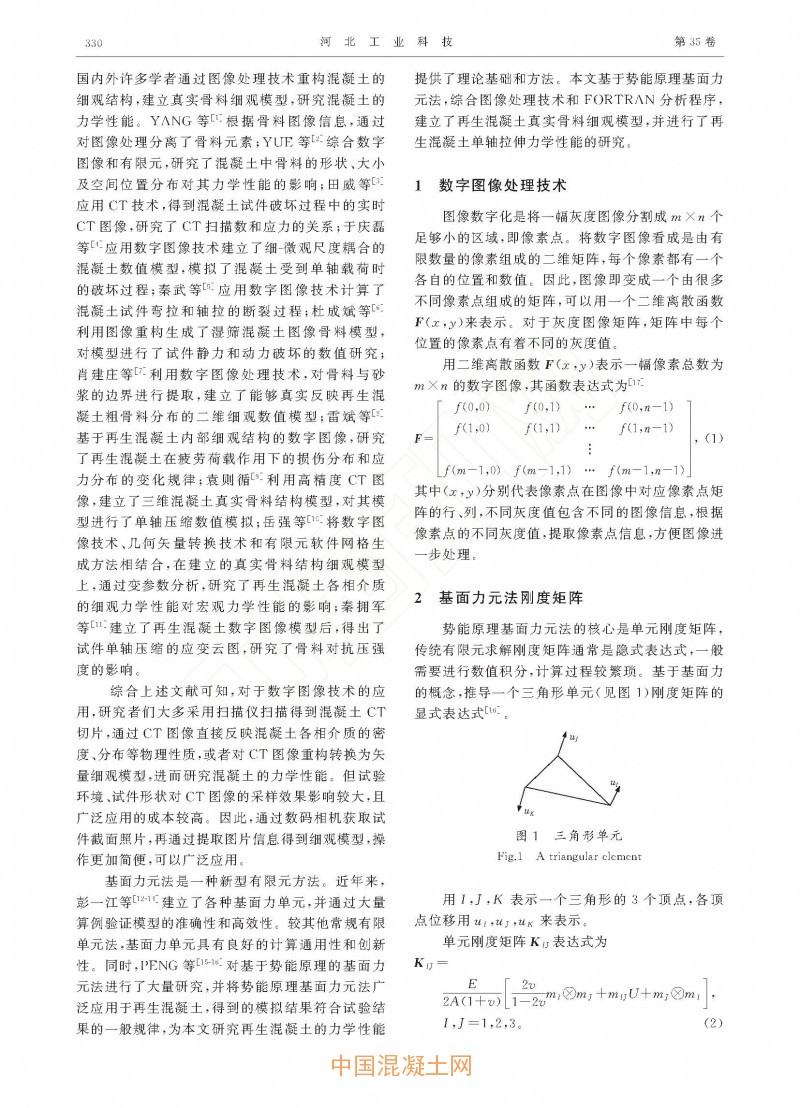 330
河 北 工 业 科 技
第 35 卷
国内外许多学者通过图像处理技术重构混凝土的
细观结构,建立真实骨料细观模型,研究混凝土的
力学性能。YANG 等[1]根据骨料图像信息,通过
对图像处理分离了骨料元素;YUE 等[2]综合数字
图像和有限元,研究了混凝土中骨料的形状、大小
及空间位置分布对其力学性能的影响;田威等[3]
应用 CT 技术,得到混凝土试件破坏过程中的实时
CT 图像,研究了 CT 扫描数和应力的关系;于庆磊
等[4]应用数字图像技术建立了细-微观尺度耦合的
混凝土数值模型,模拟了混凝土受到单轴载荷时
的破坏过程;秦武等[5]应用数字图像技术计算了
混凝土试件弯拉和轴拉的断裂过程;杜成斌等[6]
利用图像重构生成了湿筛混凝土图像骨料模型,
对模型进行了试件静力和动力破坏的数值研究;
肖建庄等[7]利用数字图像处理技术,对骨料与砂
浆的边界进行提取,建立了能够真实反映再生混
凝土粗骨料分布的二维细观数值模型;雷斌等[8]
基于再生混凝土内部细观结构的数字图像,研究
了再生混凝土在疲劳荷载作用下的损伤分布和应
力分布的变化规律;袁则循[9]利用高精度 CT 图
像,建立了三维混凝土真实骨料结构模型,对其模
型进行了单轴压缩数值模拟;岳强等[10]将数字图
像技术、几何矢量转换技术和有限元软件网格生
成方法相结合,在建立的真实骨料结构细观模型
上,通过变参数分析,研究了再生混凝土各相介质
的细观力学性能对宏观力学性能的影响;秦拥军
等[11]建立了再生混凝土数字图像模型后,得出了
试件单轴压缩的应变云图,研究了骨料对抗压强
度的影响。
综合上述文献可知,对于数字图像技术的应
用,研究者们大多采用扫描仪扫描得到混凝土 CT
切片,通过 CT 图像直接反映混凝土各相介质的密
度、分布等物理性质,或者对 CT 图像重构转换为矢
量细观模型,进而研究混凝土的力学性能。但试验
环境、试件形状对 CT 图像的采样效果影响较大,且
广泛应用的成本较高。因此,通过数码相机获取试
件截面照片,再通过提取图片信息得到细观模型,操
作更加简便,可以广泛应用。
基面力元法是一种新型有限元方法。近年来,
彭一江等[12-14]建立了各种基面力单元,并通过大量
算例验证模型的准确性和高效性。较其他常规有限
单元法,基面力单元具有良好的计算通用性和创新
性。同时,PENG 等[15-16]对基于势能原理的基面力
元法进行了大量研究,并将势能原理基面力元法广
泛应用于再生混凝土,得到的模拟结果符合试验结
果的一般规律,为本文研究再生混凝土的力学性能
提供了理论基础和方法。本文基于势能原理基面力
元法,综合图像处理技术和 FORTRAN 分析程序,
建立了再生混凝土真实骨料细观模型,并进行了再
生混凝土单轴拉伸力学性能的研究。
1 数字图像处理技术
图像数字化是将一幅灰度图像分割成 m×n 个
足够小的区域,即像素点。将数字图像看成是由有
限数量的像素组成的二维矩阵,每个像素都有一个
各自的位置和数值。因此,图像即变成一个由很多
不同像素点组成的矩阵,可以用一个二维离散函数
F(x,y)来表示。对于灰度图像矩阵,矩阵中每个
位置的像素点有着不同的灰度值。
用二维离散函数 F(x,y)表示一幅像素总数为
m×n 的数字图像,其函数表达式为[17]
f(0,0) f(0,1) … f(0,n−1)
f(1,0) f(1,1) … f(1,n−1)
F= ⋮ ,(1)
f(m−1,0) f(m−1,1) … f(m−1,n−1)
其中(x,y)分别代表像素点在图像中对应像素点矩
阵的行、列,不同灰度值包含不同的图像信息,根据
像素点的不同灰度值,提取像素点信息,方便图像进
一步处理。
2 基面力元法刚度矩阵
势能原理基面力元法的核心是单元刚度矩阵,
传统有限元求解刚度矩阵通常是隐式表达式,一般
需要进行数值积分,计算过程较繁琐。基于基面力
的概念,推导一个三角形单元(见图 1)刚度矩阵的
显式表达式[16]。
u_J
u_I
u_K
图 1 三角形单元
Fig.1 A triangular element
用 I,J,K 表示一个三角形的 3 个顶点,各顶
点位移用 u_I,u_J,u_K 来表示。
单元刚度矩阵 K_IJ 表达式为
K_IJ=
E/2A(1+υ)[2υ/1−2υ m_I⊗m_J+m_IJ U+m_J⊗m_I],
I,J=1,2,3。 (2)
中国混凝土网